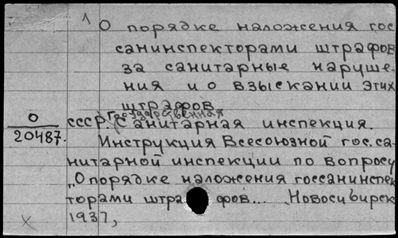 1
О порядке наложения гос
санинспекторами штрафов
за санитарные наруше-
ния и о взыскании этих
штрафов
О
20487.
СССР. Государственная
Санитарная инспекция.
Инструкция Всесоюзной гос.са-
нитарной инспекции по вопросу
„О порядке наложения госсанинспек-
торами штрафов... Новосибирск
1937,